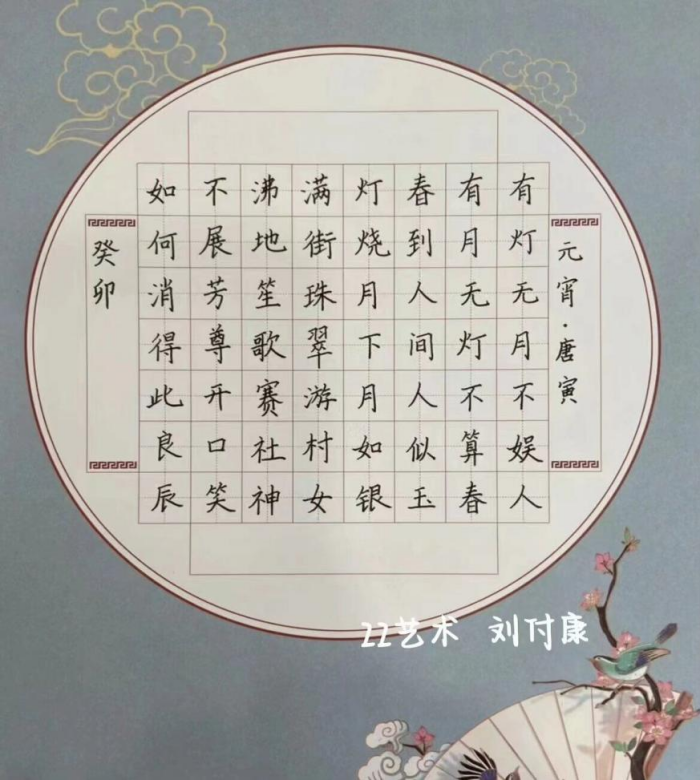 元宵·唐寅
有灯无月不娱人
有月无灯不算春
春到人间人似玉
灯烧月下月如银
满街珠翠游村女
沸地笙歌赛社神
不展芳尊开口笑
如何消得此良辰
癸卯
22艺术 刘付康